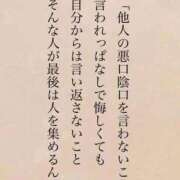 「他人の悪口陰口を言わないこ
言われっぱなしで悔しくても
自分からは言い返さないこと
そんな人が最後は人を集めるん